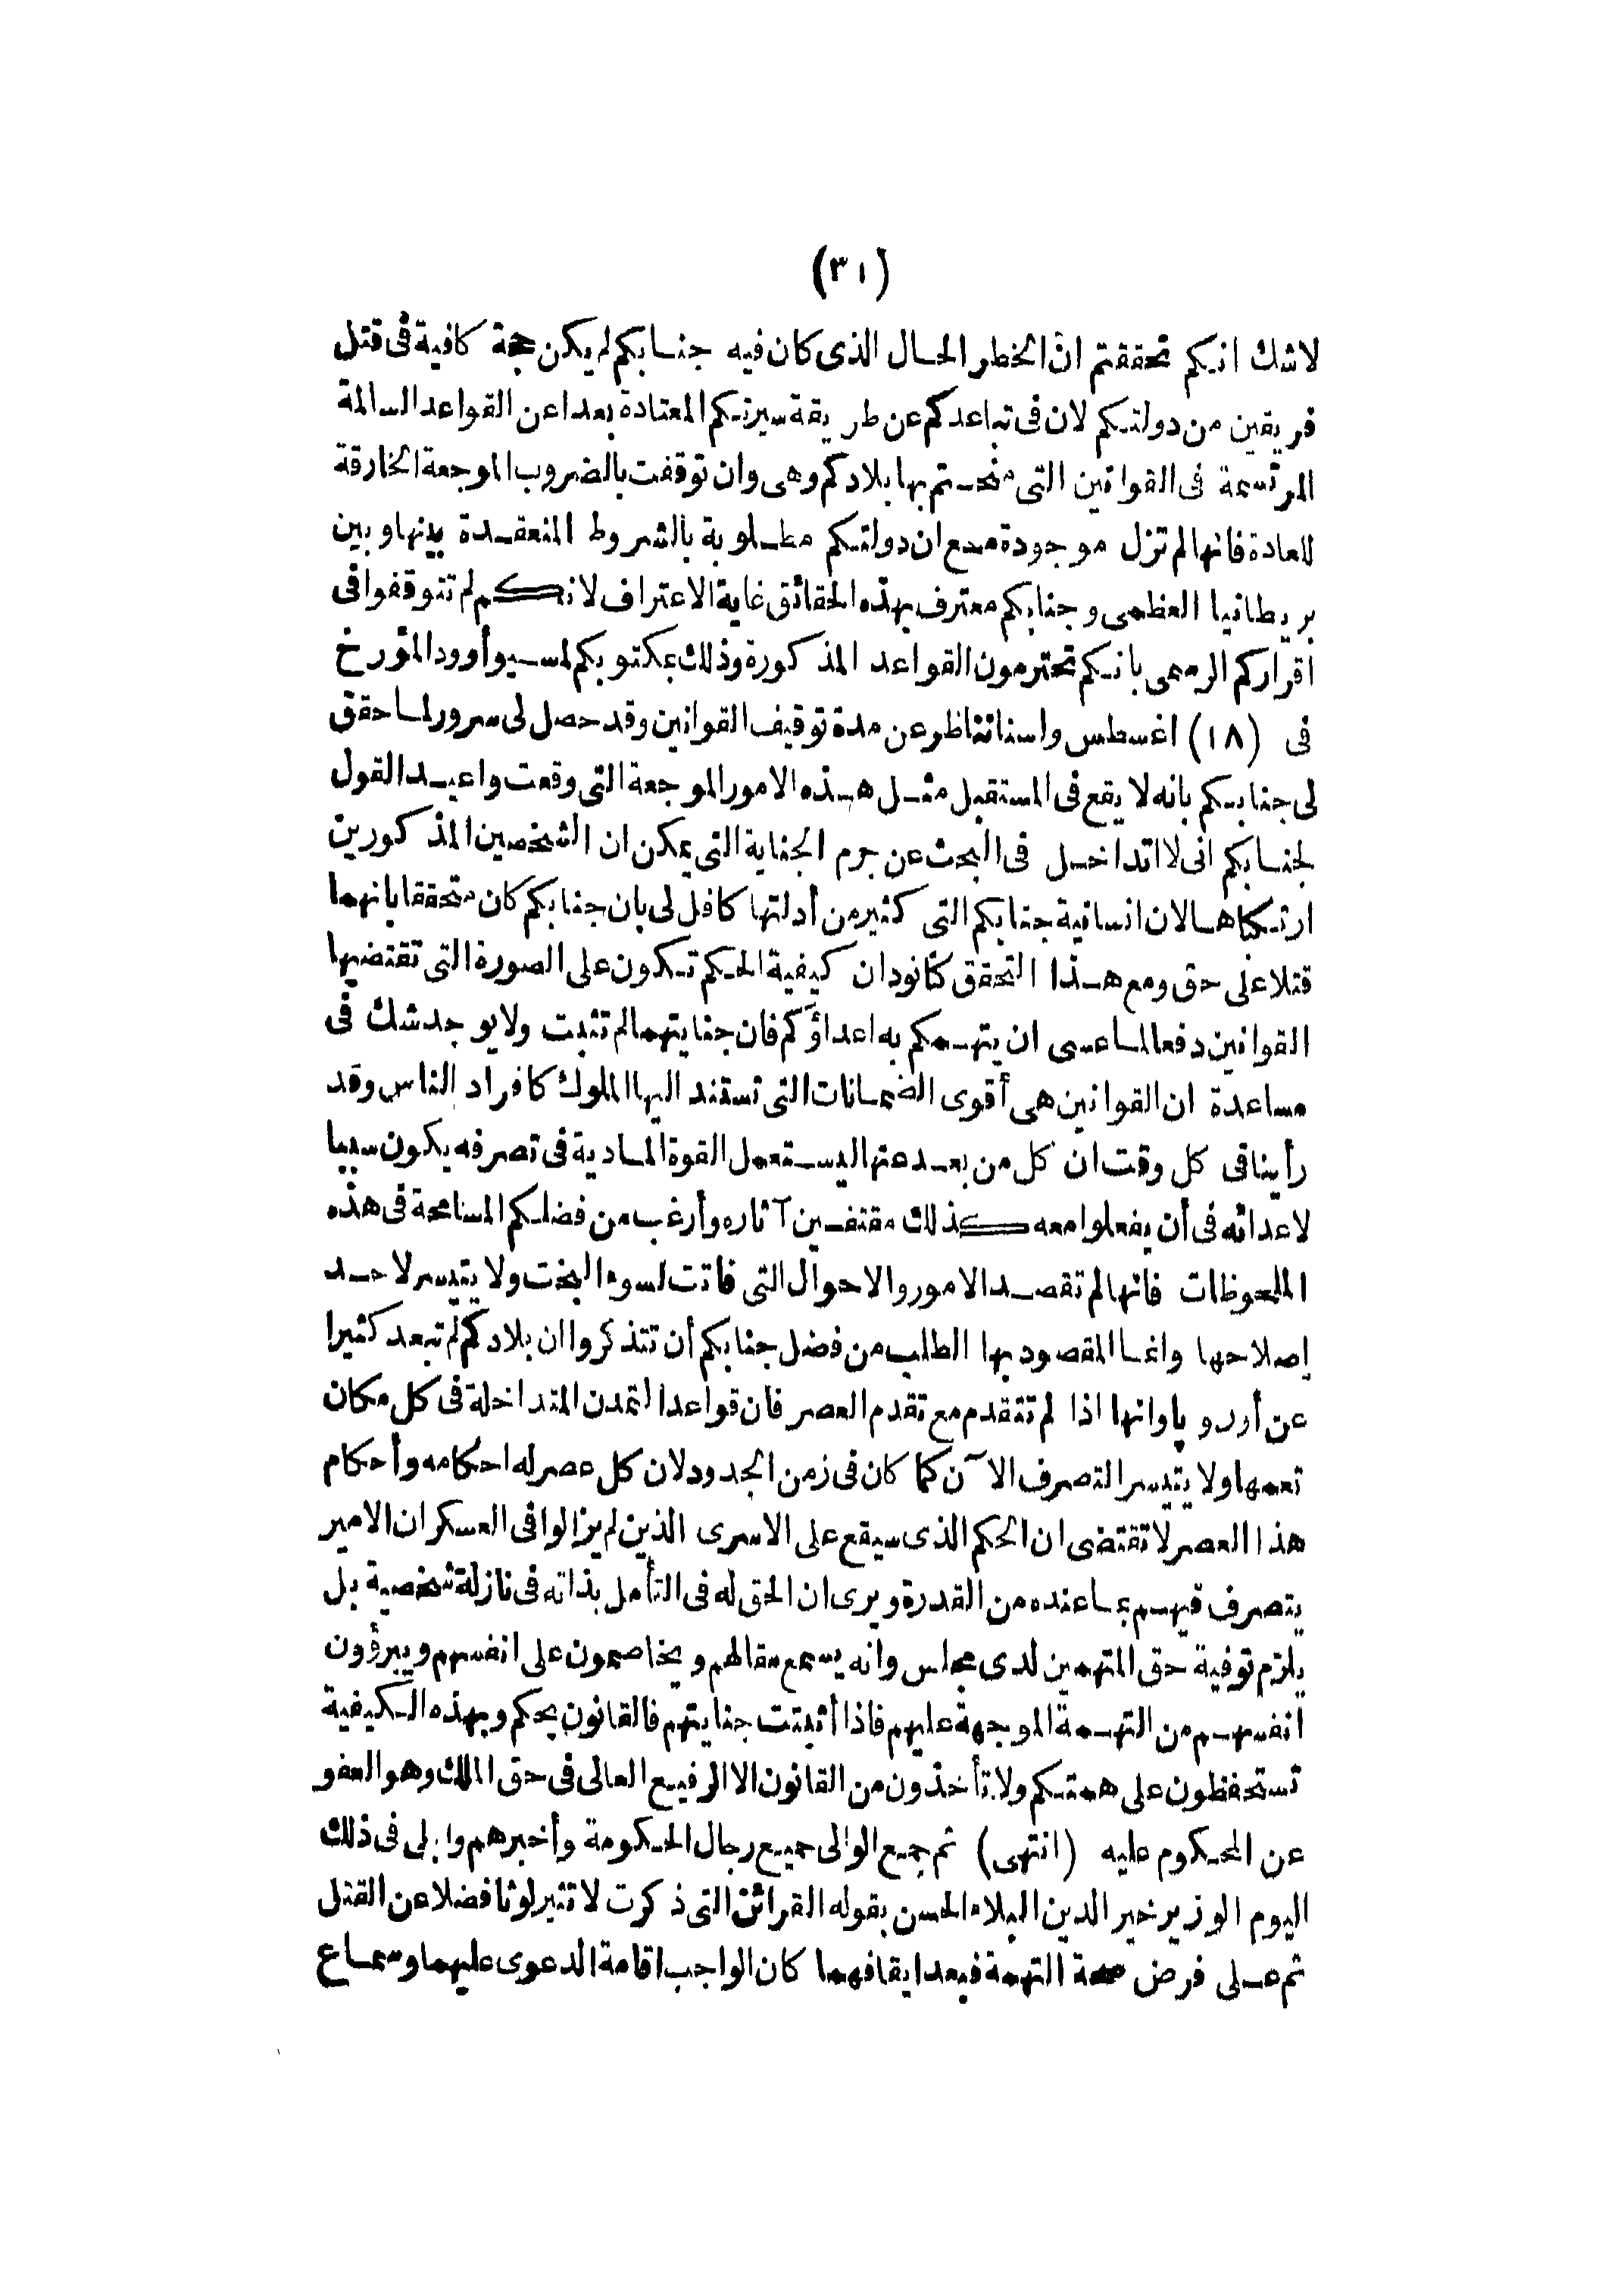 (٣١)
لاشك انكم تحققتم ان الخطر الحال الذى كان فيه جنابكم لم يكن حجة كافية فى قتل
فريقين من دولتكم لان فى تباعدكم عن طريقة سيرتكم المعتادة بعدا عن القواعد السالمة
المرتسمة فى القوانين التى منحتم بها بلادكم وهى وان توقفت بالضروب الموجعة الخارقة
للعادة فانها لم تزل موجودة مع ان دولتكم مطلوبة بالشروط المنعقدة بينها وبين
بريطانيا العظمى وجنابكم معترف بهذه الحقائق غاية الاعتراف لانكم لم تتوقفوا فى
اقراركم الرسمى بانكم تحترمون القواعد المذكورة وذلك بمكتوبكم لمسيو أوود المؤرخ
فى (١٨) اغسطس واستانتاظر عن مدة توقيف القوانين وقد حصل لى سرور لما حقق
لى جنابكم بانه لا يقع فى المستقبل مثل هذه الامور الموجعة التى وقعت واعيد القول
لجنابكم انى لا اتداخل فى البحث عن جرم الجناية التى يمكن ان الشخصين المذكورين
ارتكباها لان انسانية جنابكم التى كثير من أدلتها كافل لى بان جنابكم كان متحققا بانهما
قتلا على حق ومع هذا التحقق كنا نود ان كيفية الحكم تكون على الصورة التى تقتضيها
القوانين دفعا لما عسى ان يتهمكم به اعداؤكم فان جنايتهما لم تثبت ولا يوجد شك فى
مساعدة ان القوانين هى أقوى الضمانات التى تستند اليها الملوك كافراد الناس وقد
رأينا فى كل وقت ان كل من بعد عنها ليستعمل القوة المادية فى تصرفه يكون سببا
لاعدائه فى أن يفعلوا معه كذلك مقتفين آثاره وأرغب من فضلكم المسامحة فى هذه
الملحوظات فانها لم تقصد الامور والاحوال التى فاتت لسوء البخت ولا يتيسر لاحد
إصلاحها وانما المقصود بها الطلب من فضل جنابكم أن تتذكروا ان بلادكم لم تبعد كثيرا
عن أوروپا وانها اذا لم تتقدم مع تقدم العصر فان قواعد التمدن المتداخلة فى كل مكان
تعمها ولا يتيسر التصرف الآن كما كان فى زمن الجدود لان كل عصر له احكامه وأحكام
هذا العصر لا تقتضى ان الحكم الذى سيقع على الاسرى الذين لم يزالوا فى العسكر ان الامير
يتصرف فيهم بما عنده من القدرة ويرى ان الحق له فى التأمل بذاته فى نازلة شخصية بل
يلزم توفية حق المتهمين لدى مجلس وانه يسمع مقالهم ويخاصمون على انفسهم ويبرؤون
انفسهم من التهمة الموجهة عليهم فاذا أثبتت جنايتهم فالقانون يحكم وبهذه الكيفية
تستحفظون على همتكم ولا تأخذون من القانون الا الرفيع العالى فى حق الملك وهو العفو
عن المحكوم عليه (انتهى) ثم جمع الوالى جميع رجال الحكومة وأخبرهم وابلى فى ذلك
اليوم الوزير خير الدين البلاء الحسن بقوله القرائن التى ذكرت لا تثير لوثا فضلا عن القتل
ثم على فرض صحة التهمة فبعد ايقافهما كان الواجب اقامة الدعوى عليهما وسماع